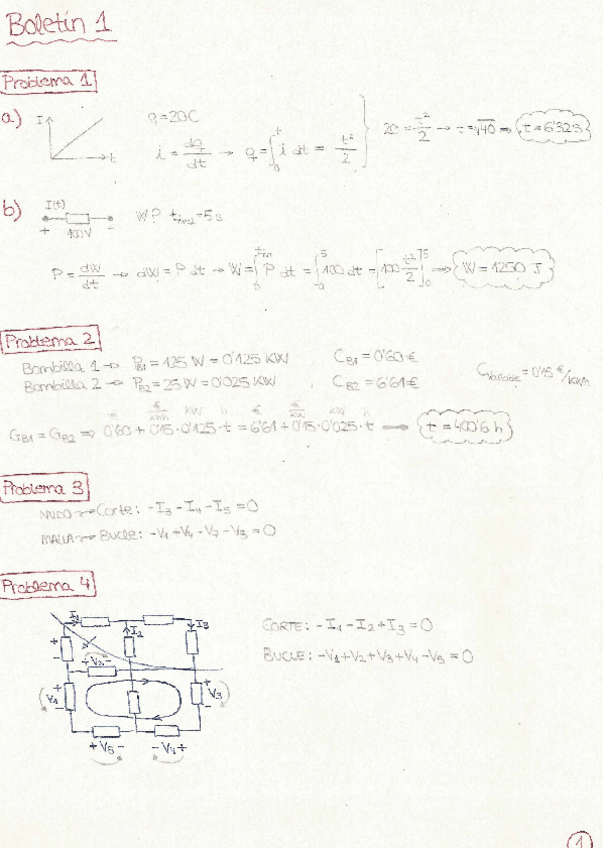 Boletín 1
Problema 1
a) I t q=20C
i = dq/dt → q = ∫₀ᵗ i dt = t²/2
20 = t²/2 → t=√40 ⇒ t=6'32s
b) I(t) + 100V - W? t_fin=5s
P = dW/dt → dW = P dt → W = ∫₀^tfin P dt = ∫₀⁵ 100 dt = [100 t²/2]₀⁵ ⇒ W = 1250 J
Problema 2
Bombilla 1 → P_B1 = 125 W = 0'125 KW C_B1 = 0'60 €
Bombilla 2 → P_B2 = 25 W = 0'025 KW C_B2 = 6'61 € C_variable = 0'15 €/kWh
€ €/kWh KW h € €/KW KW h
G_B1 = G_B2 ⇒ 0'60 + 0'15·0'125·t = 6'61 + 0'15·0'025·t → t = 400'6 h
Problema 3
NUDO → Corte: -I3 - I4 - I5 = 0
MALLA → Bucle: -V1 + V4 - V7 - V3 = 0
Problema 4
I1 I2 I3
CORTE: -I1 - I2 + I3 = 0
BUCLE: -V1 + V2 + V3 + V4 - V5 = 0
+ V2 -
V1 + - V3 + -
+ V5 - - V4 +
1